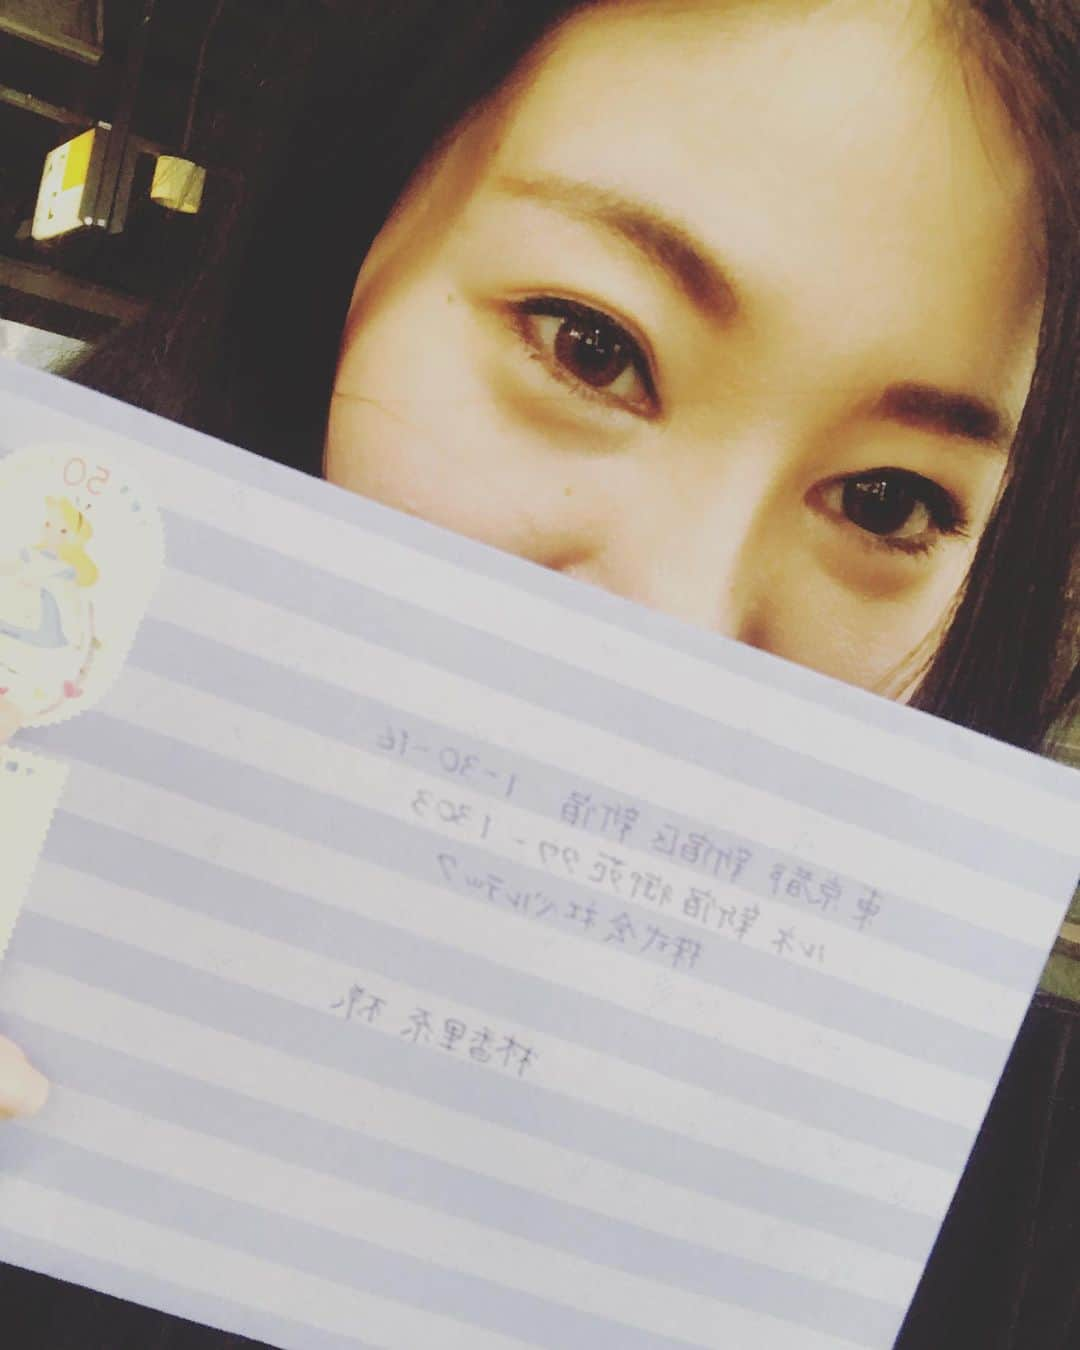 50
東京都 新宿区 新宿 1-30-16
ルネ 新宿御苑タワー 1303
株式会社ベルテック
林香里奈 様